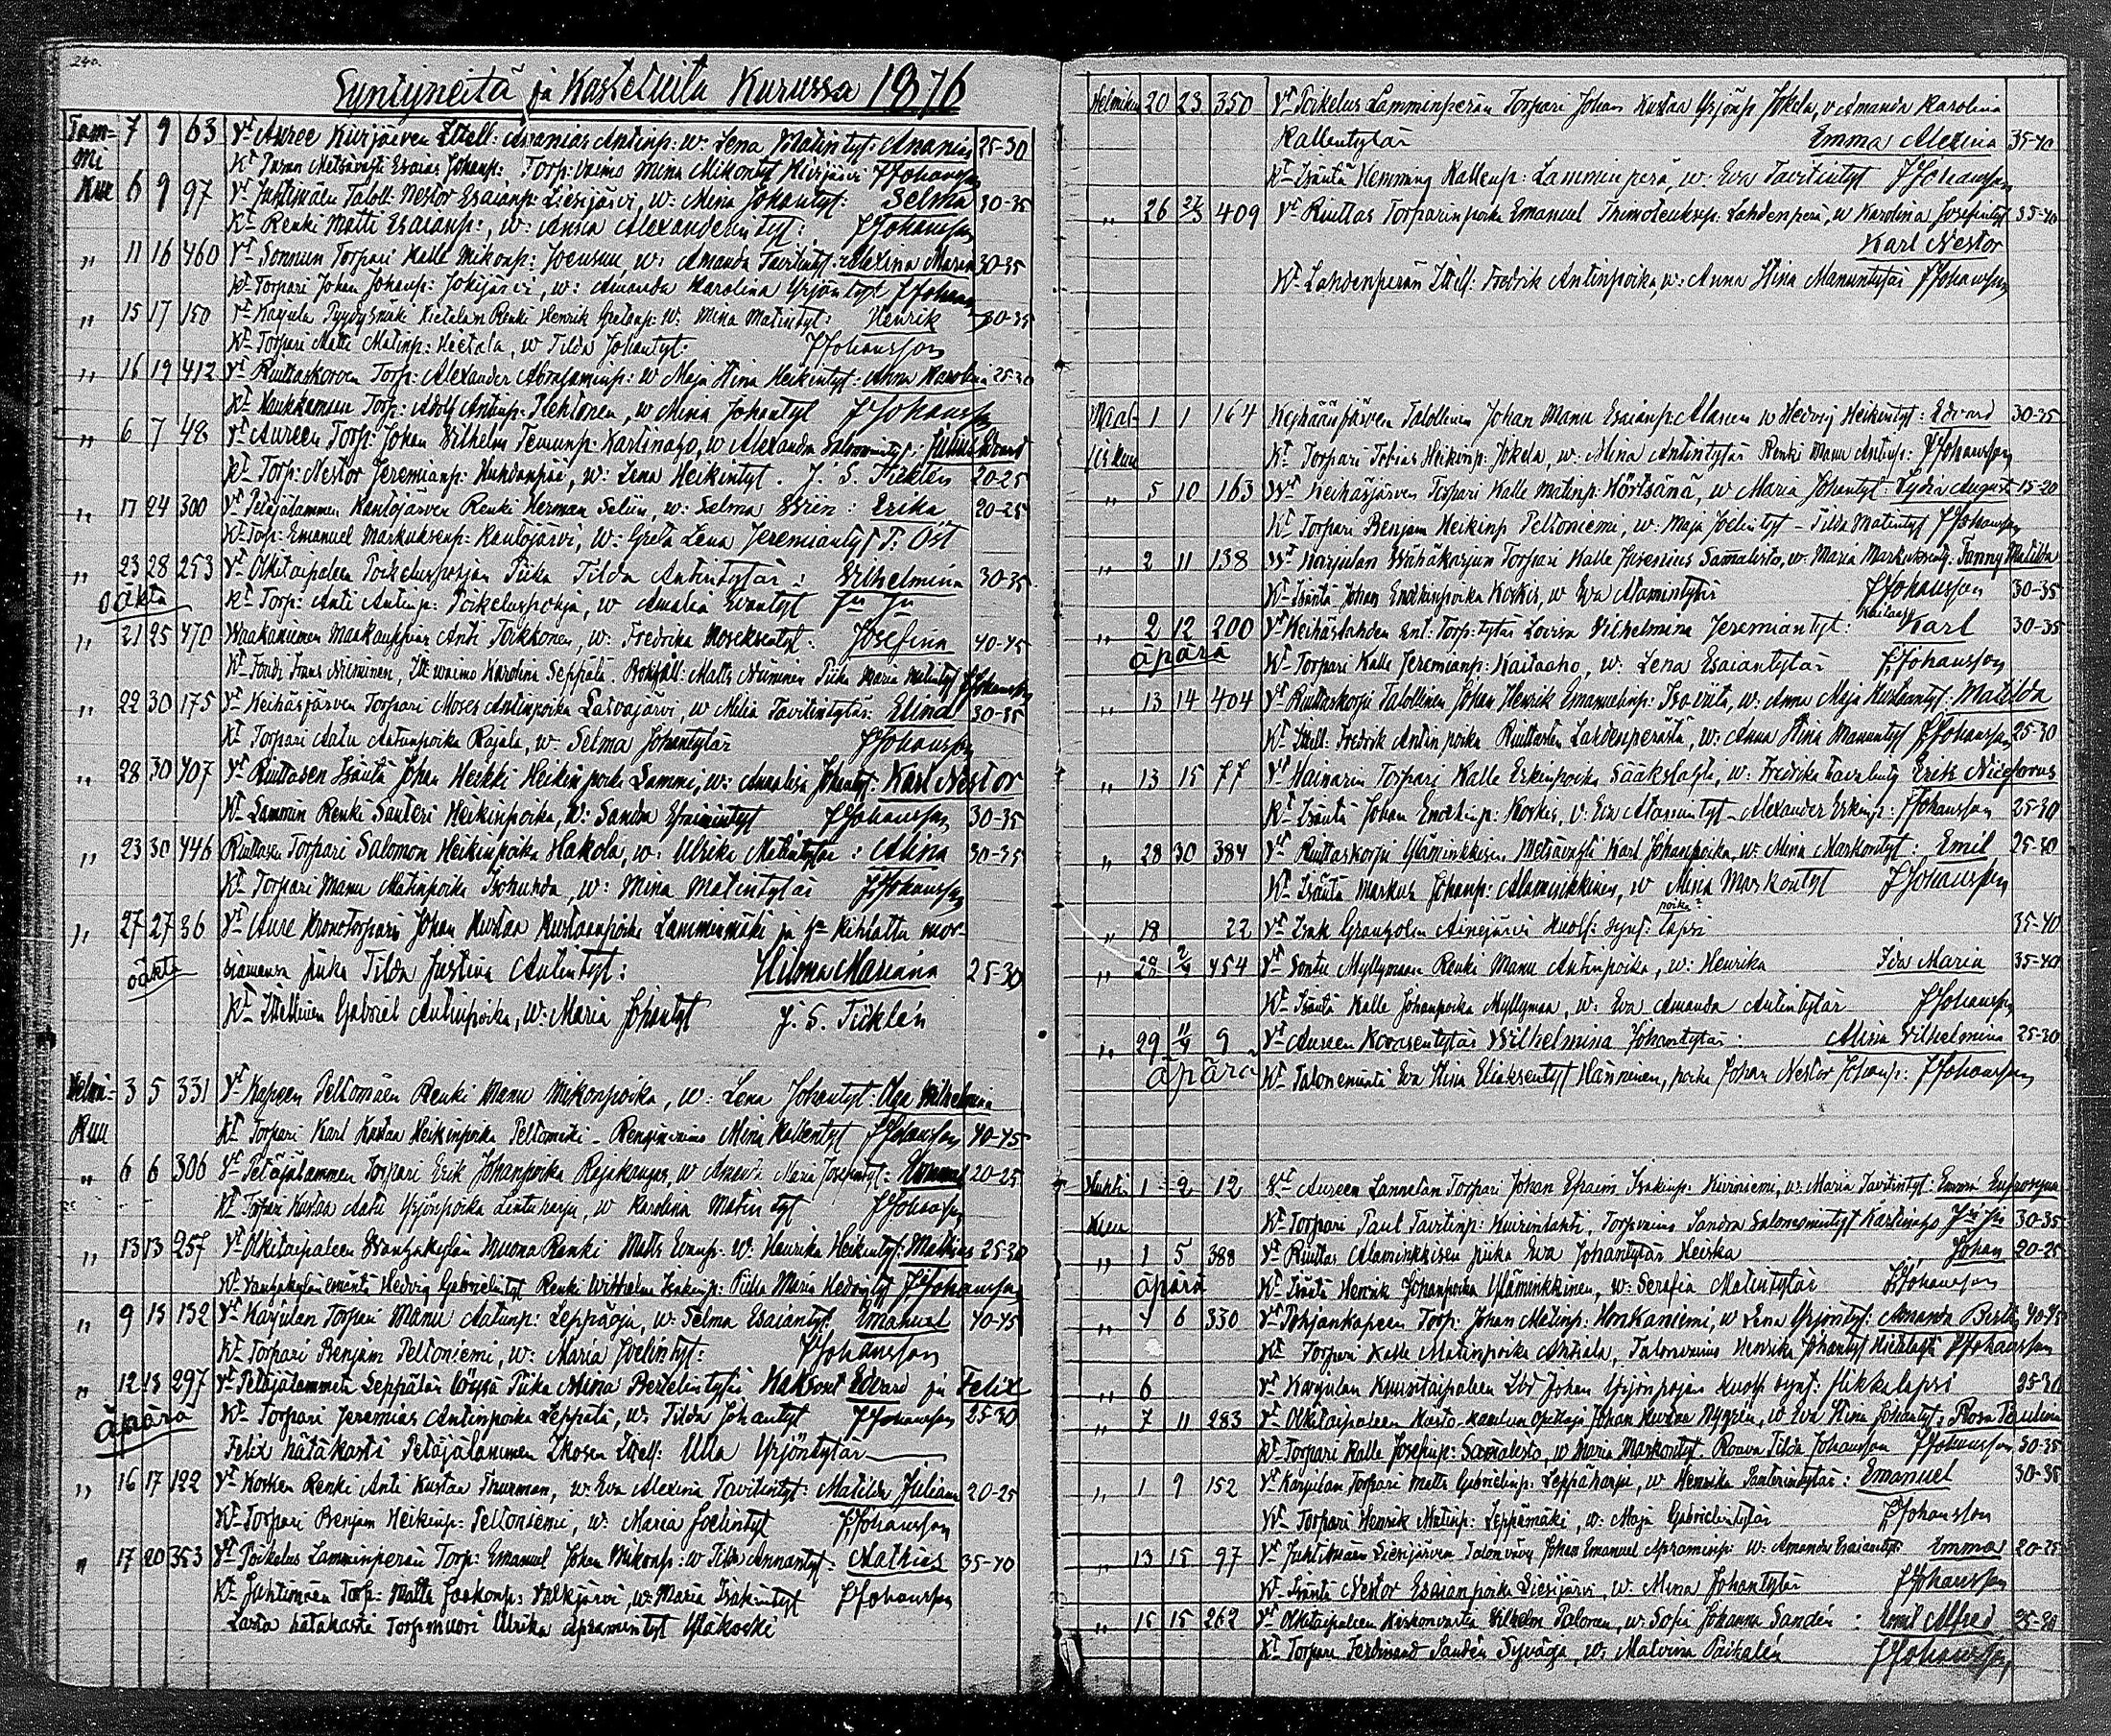 240.
Syntyneitä ja Kastetuita Kurussa 1876
Tam- 7 9 63 Vt Auree Kivijärven Itsell: Ananias Antinp: w: Lena Matintyt: Ananias 25-30
mi Kt Metsävahti Esaias Johanp: Torp: vaimo Mina Mikontyt Kivijärvi JJohansson
Kuu 6 9 97 Vt Juhtimäen Taloll: Nestor Esaianp: Liesijärvi, w: Mina Johantyt: Selma 30-35
Kt Renki Matti Esaianp:, w: Anna Alexanderintyt: JJohansson
" 11 16 460 Vt Sonnun Torpari Kalle Mikonp: Joensuu, w: Amanda Tavitintyt: Alexina Maria 30-35
Kt Torpari Johan Johanp: Jokijärvi, w: Amanda Karolina Yrjöntyt JJohansson
" 15 17 150 Vt Karjula Pyydysmäki Hietalan Renki Henrik w: Mina Matintyt: Henrik 30-35
Kt Torpari Matti Matinp: Hietala, w Tilda Johantyt: JJohansson
" 16 19 412 Vt Riuttaskorven Torp: Alexander Abrahaminp: w Maja Stina Heikintyt: Anna Karolina 25-30
Kt Torp: Adolf Antinp: Lehtonen, w Mina Johantyt JJohansson
" 6 7 48 Vt Aureen Torp: Johan Vilhelm Kartinaho, w Alexandra Salomonintyt: Julius Edvard
Kt Torp: Nestor Jeremianp:, w: Lena Heikintyt. J. S. Ticklén 20-25
" 17 24 300 Vt Petäjälammen Kantojärven Renki Herman Selin, w: Selma: Erika 20-25
Kt Torp: Emanuel Markuksenp: Kantojärvi, w: Greta Lena Jeremiantyt T. Öst
" 23 28 253 Vt Olkitaipaleen Poikeluspohjan Piika Tilda Antintytär: Vilhelmina 30-35
oäkta Kt Torp: Anti Antinp: Poikeluspohja, w Amalia Evantyt
" 21 25 470 Anti Toikkonen, w: Fredrika Moseksentyt: Josefina 40-45
Kt Frans Nieminen, Its. waimo Karolina Seppälä. Matts Nieminen Piika Maria Matintyt JJohansson
" 22 30 175 Vt Keihäsjärven Torpari Moses Antinpoika Latvajärvi, w Milia Tavitintytär: Elina 30-35
Kt Torpari Aatu Antinpoika Rajala, w: Selma Johantytär JJohansson
" 28 30 407 Vt Riuttasen Isäntä Johan Heikki Heikinpoika Lammi, w: Annaliisa Johantyt: Karl Nestor
Kt Lammin Renki Santeri Heikinpoika, w: Sandra Efraimintyt JJohansson 30-35
" 23 30 446 Riuttasen Torpari Salomon Heikinpoika Hakola, w: Ulrika Matintytär: Alina 30-35
Kt Torpari Manu Matinpoika, w: Mina Matintytär JJohansson
" 27 27 36 Vt Aure Kronotorpari Johan Kustaa Kustaanpoika Lamminmäki ja hn kihlattu mor-
oäkta siamensa piika Tilda Justina Antintyt: Hilma Mariana 25-30
Kt Itsellinen Gabriel Antinpoika, w: Maria Johantyt J. S. Ticklén
Helmi- 3 5 331 Vt Kapeen Peltomäen Renki Manu Mikonpoika, w: Lena Johantyt: Olga Vilhelmina
Kuu Kt Torpari Karl Kustaa Heikinpoika Peltomäki - Renginvaimo Mina Kallentyt JJohansson 40-45
" 6 6 306 Vt Petäjälammen Torpari Erik Johanpoika Rajakangas, w Amanda Maria Josefintyt: 20-25
Kt Torpari Kustaa Aatu Yrjönpoika Lintuharju, w Karolina Matintyt JJohansson
" 13 13 257 Vt Olkitaipaleen Renki Matts Evanp: w: Henrika Heikintyt: Mathias 25-30
Kt emäntä Hedvig Gabrielintyt Renki Vilhelm Isakinp: Piika Maria JJohansson
" 9 13 132 Vt Karjulan Torpari Manu Aatunp: Leppäoja, w: Selma Esaiantyt: Emanuel 40-45
Kt Torpari Benjam Peltoniemi, w: Maria Joelintyt: JJohansson
" 12 13 297 Vt Petäjälammen Seppälän Piika Mina Bertelintytär Kaksoset Edvard ja Felix
äpärä Kt Torpari Jeremias Antinpoika Seppälä, w: Tilda Johantyt JJohansson 25-30
Felix hätäkasti Petäjälammen Itsell: Ulla Yrjöntytär
" 16 17 122 Vt Kosken Renki Anti Kustaa Thurman, w: Eva Alexina Tavitintyt: Matilda Juliana 20-25
Kt Torpari Benjam Heikinp: Peltoniemi, w: Maria Joelintyt JJohansson
" 17 20 353 Vt Poikelus Lamminperän Torp: Emanuel Johan Mikonp: w Tilda Annantyt: Mathias 35-40
Kt Juhtimäen Torp: Matte Jaakonp: Valkjärvi, w: Maria Isakintyt JJohansson
Lasta hätäkasti Torp: muori Ulrika Apramintyt Yläkoski
Helmikuu 20 23 350 Vt Poikelus Lamminperän Torpari Johan Kustaa Yrjönp: Jokela, v Amanda Karolina
Kallentytär Emma Alexina 35-40
Kt Isäntä Hemming Kallenp: Lamminperä, w: Eva Tavitintyt JJohansson
" 26 27/3 409 Vt Riuttas Torparinpoika Emanuel Thimoteuksenp: Lahdenperä, w Karolina Josefintyt 35-40
Karl Nestor
Kt Lahdenperän Itsell: Fredrik Antinpoika, w: Anna Stina Manuntytär JJohansson
Maal- 1 1 164 Keihäsjärven Talollinen Johan Manu Esaianp: Alanen w Hedvig Heikintyt: Edvard 30-35
liskuu Kt Torpari Tobias Heikinp: Jokela, w: Mina Antintytär Renki Manu Antinp: JJohansson
" 5 10 163 Vt Keihäsjärven Torpari Kalle Matinp: Hörtsänä, w Maria Johantyt: Lydia August 15-20
Kt Torpari Benjam Heikinp Peltoniemi, w: Maja Joelintyt - Tilda Matintyt JJohansson
" 2 11 138 Vt Karjulan Vähäkarjun Torpari Kalle Samalisto, w: Maria Markuksentyt: Fanny Matilda
Kt Isäntä Johan Enokinpoika Koskis, w Eva Adamintytär JJohansson 30-35
" 2 12 200 Vt Keihäslahden Ent: Torp: tytär Lovisa Vilhelmina Jeremiantyt: Karl 30-35
äpärä Kt Torpari Kalle Jeremianp: Kaitaaho, w: Lena Esaiantytär JJohansson
" 13 14 404 Vt Riuttaskorpi Talollinen Johan Henrik Emanuelinp:, w: Anna Maja Kustaantyt: Matilda
Kt Itsell: Fredrik Antinpoika Riuttasten Lahdenperästä, w: Anna Stina Manuntyt JJohansson 25-30
" 13 15 77 Vt Hainarin Torpari Kalle Erkinpoika Sääkslahti, w: Fredrika Erik Nicoforus
Kt Isäntä Johan Enokinp: Koskis, v: Eva Adamintyt - Alexander Erkinp: JJohansson 25-30
" 28 30 384 Vt Riuttaskorpi Yläminkkisen Metsävahti Karl Johanpoika, w: Mina Markontyt: Emil 25-30
Kt Isäntä Markus Johanp: Alaminkkinen, w Mina Markontyt JJohansson
poika?
" 18 22 Vt Isak Granholm Ainejärvi Kuoll: synt: lapsi 35-40
" 28 2/4 454 Vt Sontu Myllymaan Renki Manu Antinpoika, w: Henrika Ida Maria 35-40
Kt Isäntä Kalle Johanpoika Myllymaa, w: Eva Amanda Antintytär JJohansson
" 29 11/4 9 Vt Aureen Kovasentytär Vilhelmina Johantytär: Alina Vilhelmina 25-30
äpärä Kt Talonemäntä Eva Stina Eliaksentyt Hänninen, poika Johan Nestor Johanp: JJohansson
Huhti- 1 2 12 Vt Aureen Lannetan Torpari Johan Efraim Isakinp: Kivniemi, w: Maria Tavitintyt: Emma Eufrosyna
Kuu Kt Torpari Paul Tavitinp: Kuivinlahti, Torp: vaimo Sandra Salomonintyt Kartinaho 30-35
" 1 5 388 Vt Riuttas Alaminkkisen piika Eva Johantytär Heiska Johan 20-25
äpärä Kt Isäntä Henrik Johanpoika Yläminkkinen, w: Serafia Matintytär JJohansson
" 4 6 330 Vt Pohjankapeen Torp: Johan Matinp: Honkaniemi, w Lena Yrjöntyt: Amanda Berta 40-45
Kt Torpari Kalle Matinpoika Anttala, Talonvaimo Henrika Johantyt Hietalahti JJohansson
" 6 Vt Karjulan Kuusitaipaleen Johan Yrjönpojan kuoll: synt: tikkalapsi 25-30
" 7 11 283 Vt Olkitaipaleen Kierto-koulun Opettaja Johan Kustaa Nygrén, w Eva Stina Johantyt: Rosa Paulina
Kt Torpari Kalle Josefinp: Samalisto, w Maria Markontyt. Rouva Tilda Johansson JJohansson 30-35
" 1 9 152 Vt Karjulan Torpari Matts Gabrielinp: Leppäharju, w Henrika Santerintytär: Emanuel 30-35
Kt Torpari Henrik Matinp: Leppämäki, w: Maja Gabrielintytär JJohansson
" 13 15 97 Vt Juhtimäen Liesijärven Talonvävy Johan Emanuel Apraminp: w: Amanda Esaiantyt: Emma 20-25
Kt Isäntä Nestor Esaianpoika Liesijärvi, w: Mina Johantytär JJohansson
" 15 15 262 Vt Olkitaipaleen Vilhelm Palonen, w: Sofia Johanna Sandén: Emil Alfred 25-30
Kt Torpari Ferdinand Sandén Syväoja, w: Malvina JJohansson